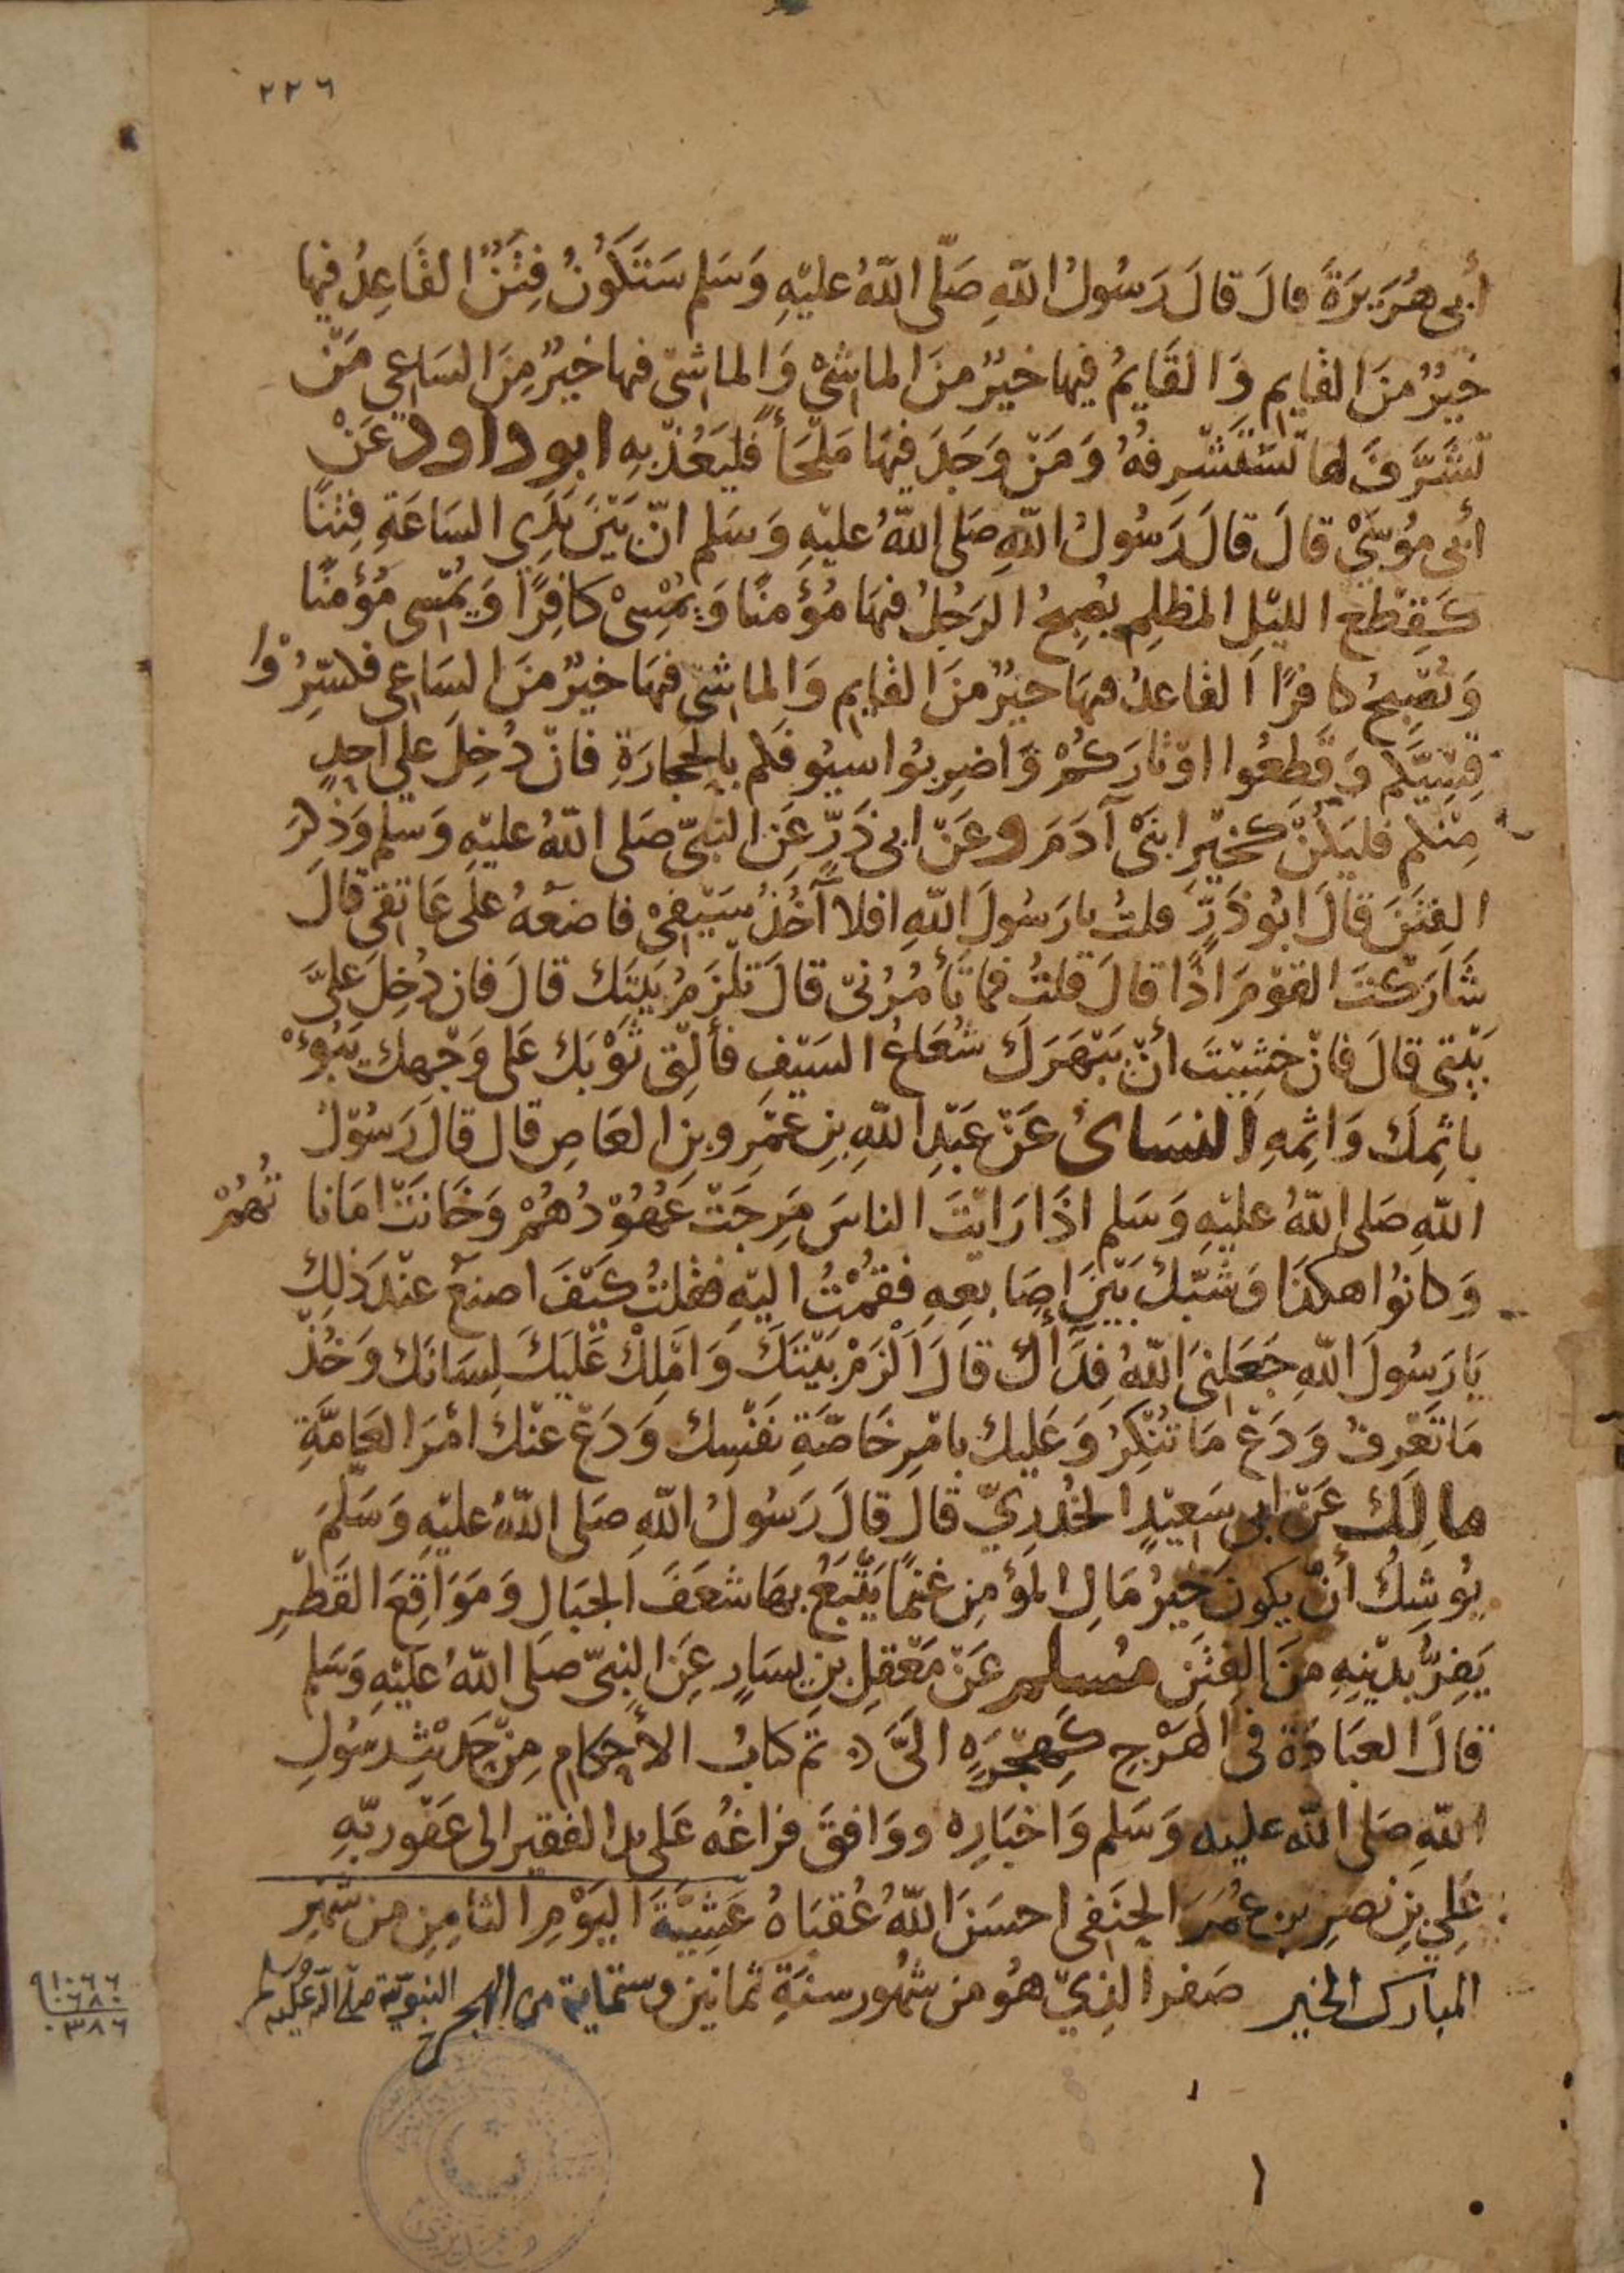 ٢٢٦
أبي هُرَيرَةَ قالَ قالَ رَسُولُ اللّهِ صَلّى اللّهُ عليْهِ وَسَلم سَتَكُونُ فِتَنٌ القَاعِدُ فيها
خَيرٌ منَ القايمِ وَالقَايمُ فيها خيرٌ منَ الماشيْ وَالماشي فيها خيرٌ مِنَ السَاعِي مَنْ
تَشَرَّفَ لها تَستَشرِفهُ وَمَنْ وَجَدَ فيهَا مَلجَأً فليَعُذْ بِهِ ابو داود عَنْ
أبي مُوسَيْ قالَ قالَ رَسُولُ اللّهِ صَلى اللّهُ عليْهِ وَسَلم انّ بَيْنَ يَدَيِ السَاعَةِ فِتنًا
كَقِطَعِ الليْلِ المظلِمِ يُصبِحُ الرَجُلُ فيهَا مُؤمنًا وَيُمْسِىْ كافِرًا وَيُمْسِى مُؤمنًا
وَيُصْبِحُ كافرًا القاعدُ فيهَا خيرٌ منَ القايمِ وَالماشي فيهَا خيرٌ منَ السَاعِى فكسّرُوْا
قِسِيَّكم وَقطِعُوا اوْتارَكُمْ وَاضرِبُوا سيُوفكم بالحِجارَةِ فانْ دُخِلَ على احدٍ
مِنْكم فليَكُنْ كخَيْرِ ابنَىْ آدَمَ وعَنْ ابى ذَرٍّ عَنِ النبيّ صَلى اللّهُ عليْهِ وَسَلم وَذكرَ
الفِتَنَ قالَ ابُو ذَرٍّ قلتُ يارَسُولَ اللّهِ افلا آخُذُ سَيْفِىْ فاضَعُهُ علَى عَاتِقى قالَ
شَارَكْتَ القوْمَ اذًا قالَ قلتُ فما تَأمُرُنىّ قالَ تَلزَمُ بَيتَك قالَ فان دُخِلَ علىَّ
بَيْتى قالَ فانْ خشِيْتَ أنْ يَبْهَرَكَ شُعَاعُ السَيْفِ فألْقِ ثَوْبَك عَلى وَجْهِك يَبُوءْ
باثمِكَ وَاثمِهِ النسَائ عَنْ عَبْدِ اللّهِ بنِ عَمْرِو بنِ العَاصِ قالَ قالَ رَسُوْلُ
اللّهِ صَلى اللّهُ عليْهِ وَسَلم اذَا رَايْتَ الناسَ مَرِجَتْ عُهُوْدُهُمْ وَخَانَتْ امَانا تُهُمْ
وَكانُوا هكذا وَشبّك بَيْنَ اصَابعِهِ فقُمْتُ اليْهِ فقلتُ كَيْفَ اصنعُ عنْدَ ذلِك
يَارَسُولَ اللّهِ جَعَلَنىَ اللّهُ فِدَاك قالَ الْزَمْ بَيْتَكَ وَامْلِكْ عَلَيْكَ لِسَانَك وَخُذْ
مَا تَعْرِفُ وَدَعْ مَا تُنْكِرُ وَعَليك بامْرِ خَاصّةِ نَفسِك وَدَعْ عنْك امْرَ العَامَّةِ
مالِك عَنْ ابى سَعِيْدٍ الخُدرِيّ قالَ قالَ رَسُولُ اللّهِ صَلى اللّهُ عليْهِ وَسَلّمَ
يُوشِكُ أنْ يكونَ خيرُ مَالِ المؤمِنِ غنمًا يَتْبَعُ بِهَا شعَفَ الجبَالِ وَمَوَاقِعَ القَطْرِ
يَفِرُّ بدِيْنِهِ منَ الفِتَنِ مُسلم عَنْ مَعْقِلِ بنِ يسَارٍ عَنِ النبىّ صَلى اللّهُ عَلَيْهِ وَسَلم
قالَ العبَادَةُ فى الهَرْجِ كَهِجْرَةٍ الىَّ تم كتابُ الأحكامِ مِنْ حَدِيْثِ رسُولِ
اللّهِ صَلى اللّه عليه وَسَلم وَاخبَارِه ووَافقَ فراغُه عَلى يد الفقير الى عَفوِ رَبّهِ
عَلِي بنِ نصرِ بنِ عُمَرَ الحنَفى احسَنَ اللّهُ عُقبَاهُ عَشيَّةَ اليَوْمِ الثامِنِ من شهْرِ
المبارك الخير صَفر الذِيْ هُو من شهُور سنةِ ثمانين وستماية من الهجرة النبوية صلى الله عليه وسلم
٩١٠٦٦
٠٦٨٠
٠٣٨٦